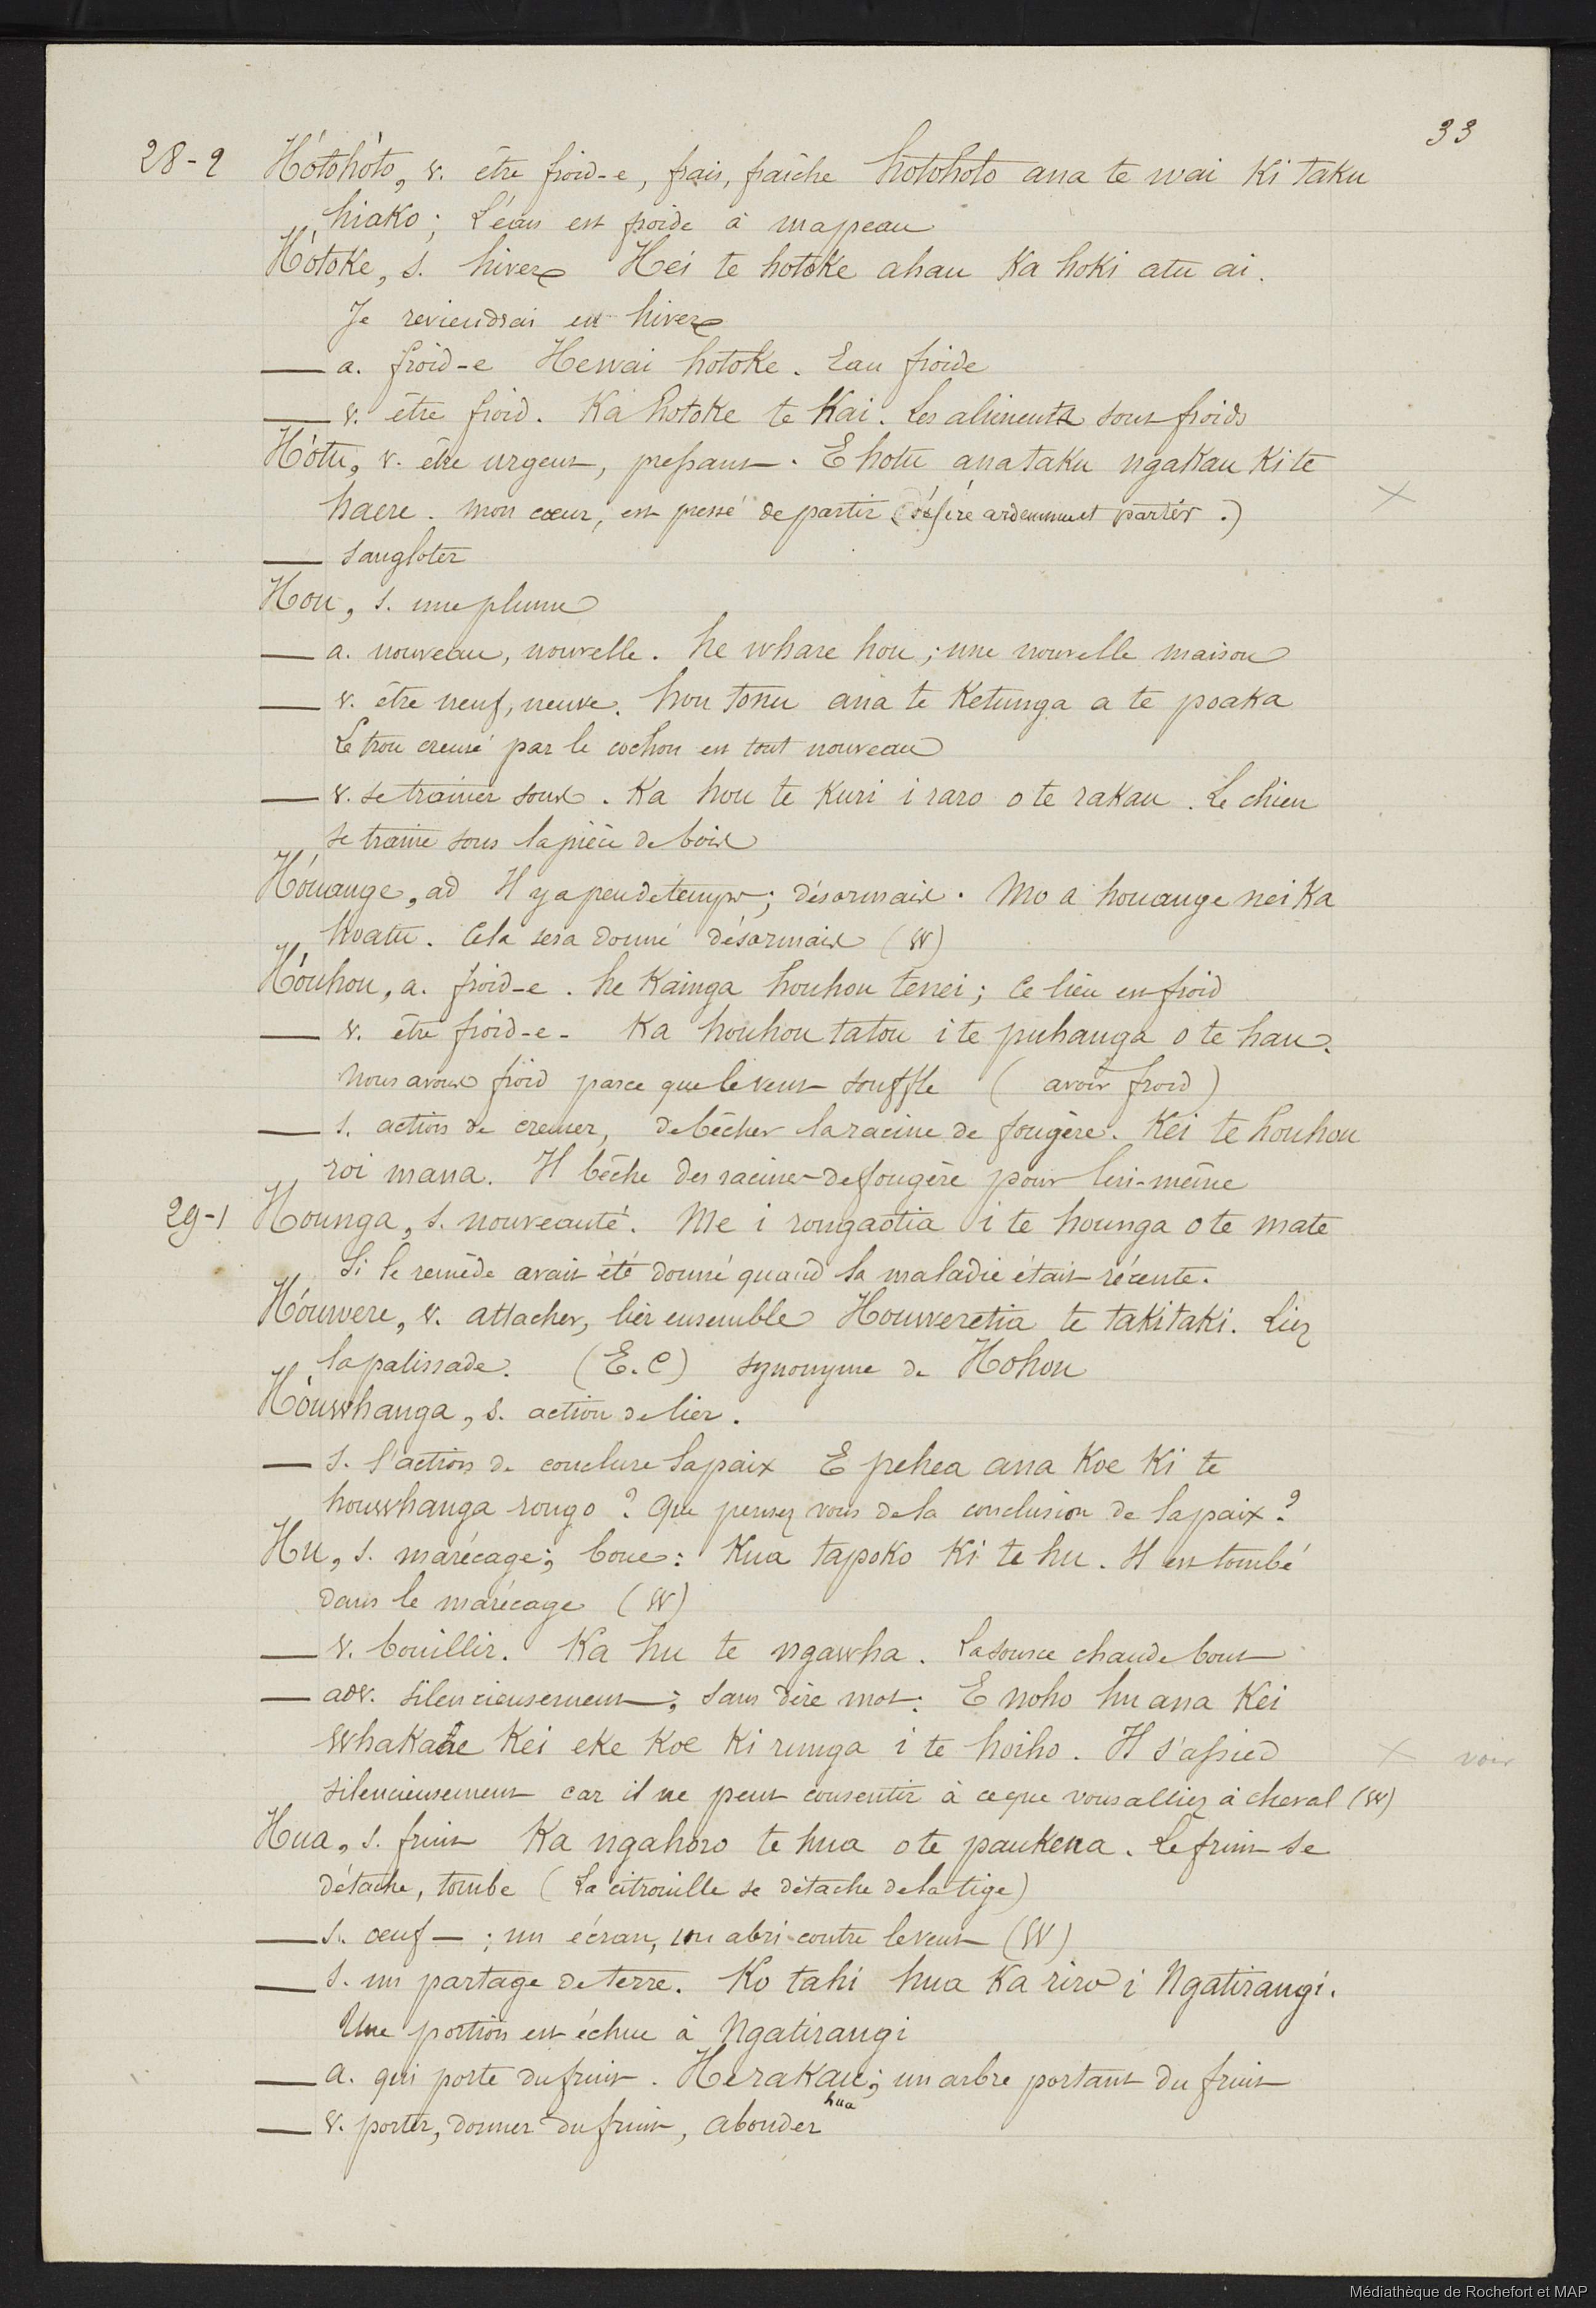 33
28-2 Hótohóto, v. être froid-e, frais, fraîche hotohoto ana te wai Ki taku
hiako; L'eau est froide à ma peau
Hótoke, s. hiver Hei te hotoke ahau Ka hoki atu ai.
Je reviendrai en hiver
— a. froid-e He wai hotoke. Eau froide
— v. être froid. Ka hotoke te Kai. Les aliments sont froids
Hótu, v. être urgent, pressant. E hotu ana taku ngakau Ki te
haere. mon cœur, est pressé de partir (désire ardemmet partir.) ×
— sangloter
Hou, s. une plume
— a. nouveau, nouvelle. he whare hou; une nouvelle maison
— v. être neuf, neuve. hou tonu ana te Ketunga a te poaka
Le trou creusé par le cochon est tout nouveau
— v. se traîner sous. Ka hou te Kuri i raro o te rakau. Le chien
se traine sous la pièce de bois
Hóuange, ad Il y a peu de temps; désormais. Mo a houange nei Ka
hoatu. Cela sera donné désormais (W)
Hóuhou, a. froid-e. he Kainga houhou tenei; Ce lieu est froid
— v. être froid-e- Ka houhou tatou i te puhanga o te hau.
Nous avons froid parce que le vent souffle (avoir froid)
— s. action de creuser, de bêcher la racine de fougère. Kei te houhou
roi mana. Il bêche des racines de fougère pour lui-même
29-1 Hounga, s. nouveauté. Me i rongaotia i te hounga o te mate
Si le remède avait été donné quand la maladie était récente.
Hóuwere, v. attacher, lier ensemble Houweretia te takitaki. Liez
la palissade. (E.C) synonyme de Hohou
Hóuwhanga, s. action de lier.
— s. l'action de conclure la paix E pehea ana Koe Ki te
houwhanga rongo? Que pensez vous de la conclusion de la paix?
Hu, s. marécage; boue: Kua tapoko Ki te hu. Il est tombé
dans le marécage (W)
— v. bouillir. Ka hu te ngawha. La source chaude bout
— adv. silencieusement; sans dire mot: E noho hu ana Kei
whakaae Kei eke Koe Ki runga i te hoiho. Il s'assied × voir
silencieusement car il ne peut consentir à ce que vous alliez à cheval (W)
Hua, s. fruit Ka ngahoro te hua o te paukena. Le fruit se
détache, tombe (La citrouille se détache de la tige)
— s. œuf —; un écran, un abri contre le vent (W)
— s. un partage de terre. Ko tahi hua Ka riro i Ngatirangi.
Une portion est échue à Ngatirangi
— a. qui porte du fruit. He rakau; un arbre portant du fruit
hua
— v. porter, donner du fruit, abonder
Médiathèque de Rochefort et MAP